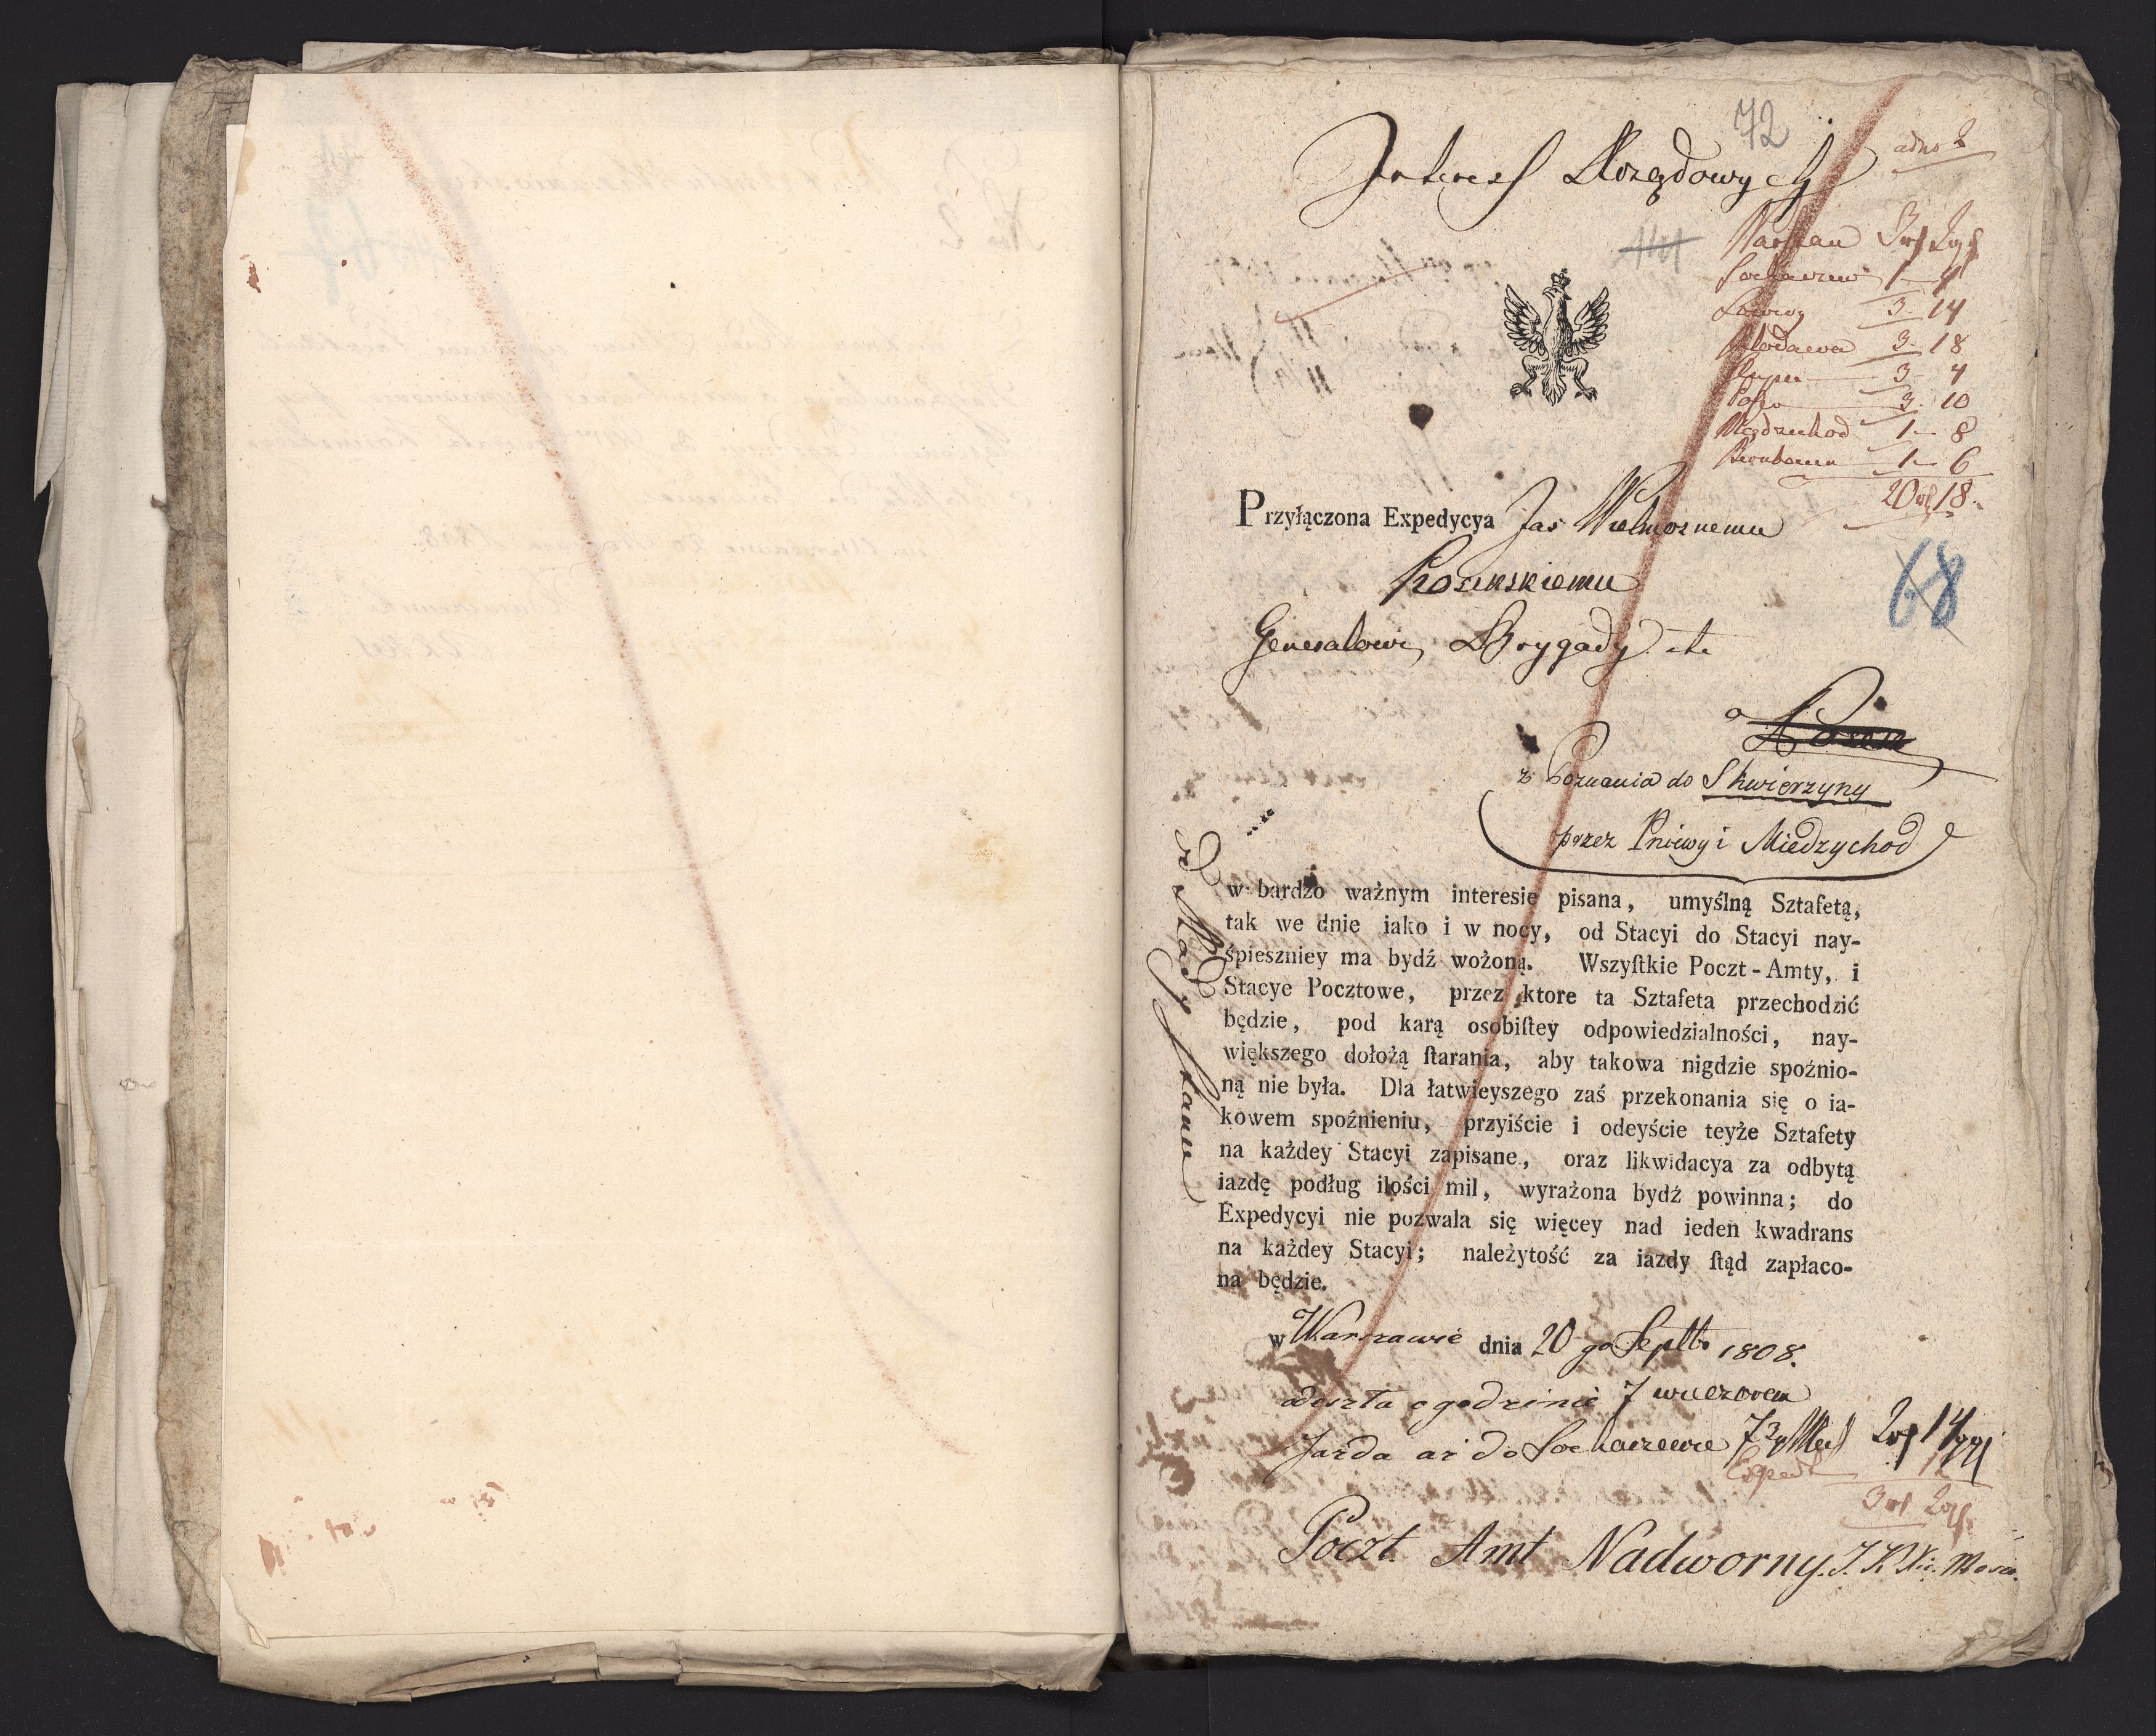 72
Interess Rządowy
adno 2
Warszau 3 rf 2 ggl
Sochaczew 1 — 4
Lowicz 3. 14
Klodawa 3. 18
Slupca 3 4
3. 10
Miedzichod 1 — 8
1 — 6
20 rf 18.
Przyłączona Expedycya Jas Wielmoznemu
Kosinskiemu
68
Generałowi Brygady etc
a
z Poznania do Skwierzyny
przez Pniewy i Miedzychod
w bardzo ważnym interesie pisana, umyślną Sztafetą,
tak we dnie iako i w nocy, od Stacyi do Stacyi nay-
śpieszniey ma bydź wożoną. Wszyſtkie Poczt-Amty, i
Stacye Pocztowe, przez ktore ta Sztafeta przechodzić
będzie, pod karą osobiſtey odpowiedzialności, nay-
większego dołożą ſtarania, aby takowa nigdzie spoźnio-
ną nie była. Dla łatwieyszego zaś przekonania się o ia-
kowem spoźnieniu, przyiście i odeyście teyże Sztafety
na każdey Stacyi zapisane, oraz likwidacya za odbytą
iazdę podług ilości mil, wyrażona bydź powinna; do
Expedycyi nie pozwala się więcey nad ieden kwadrans
na każdey Stacyi; należytość za iazdy ſtąd zapłaco-
na będzie.
w Warszawie dnia 20 go Septb. 1808.
odeszła o godzinie 7 wieczorem
Jazda aż do Sochaczewa 7 3/4 Mil 2 rf 14 ggl
Exped 12
3 rf 2 ggl
Poczt Amt Nadworny. J. K.